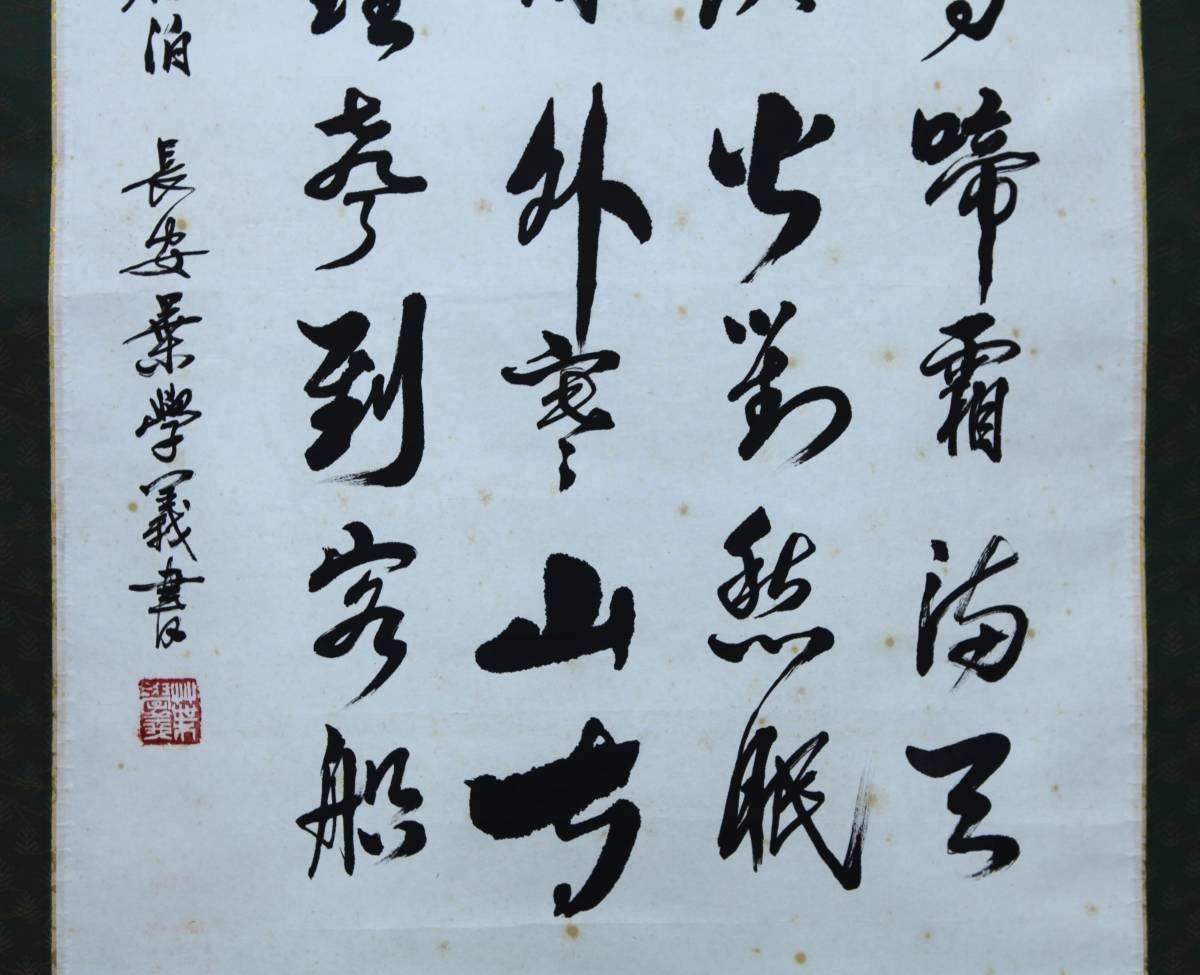 啼霜满天
火對愁眠
外寒山寺
聲到客船
泊 長安葉學義書
葉學義